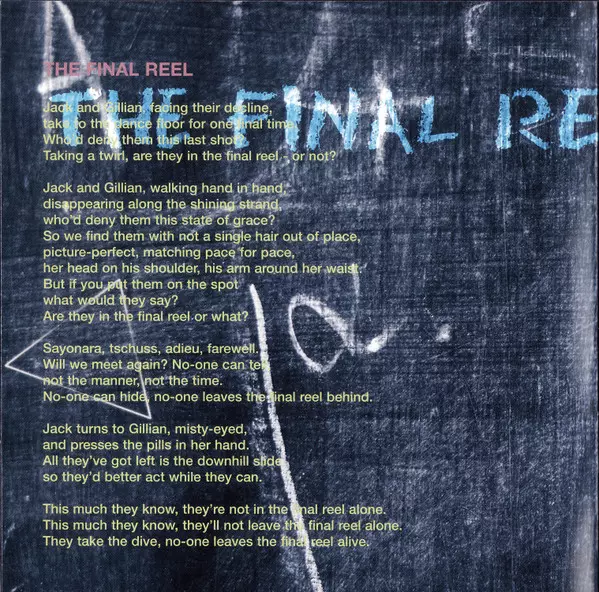 THE FINAL REEL
THE FINAL RE
Jack and Gillian, facing their decline,
take to the dance floor for one final time.
Who'd deny them this last shot?
Taking a twirl, are they in the final reel - or not?
Jack and Gillian, walking hand in hand,
disappearing along the shining strand,
who'd deny them this state of grace?
So we find them with not a single hair out of place,
picture-perfect, matching pace for pace,
her head on his shoulder, his arm around her waist.
But if you put them on the spot
what would they say?
Are they in the final reel or what?
Sayonara, tschuss, adieu, farewell.
Will we meet again? No-one can tell
not the manner, not the time.
No-one can hide, no-one leaves the final reel behind.
Jack turns to Gillian, misty-eyed,
and presses the pills in her hand.
All they've got left is the downhill slide
so they'd better act while they can.
This much they know, they're not in the final reel alone.
This much they know, they'll not leave the final reel alone.
They take the dive, no-one leaves the final reel alive.